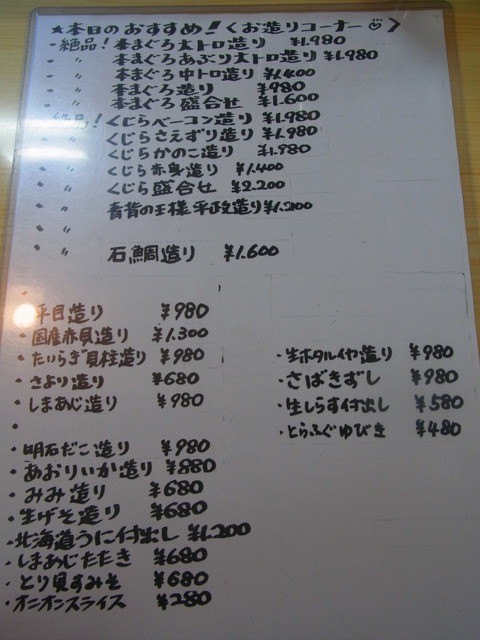 ★本日のおすすめ!〈お造りコーナー♡〉
・絶品!本まぐろ大トロ造り ¥1.980
・〃 本まぐろあぶり大トロ造り ¥1.980
・〃 本まぐろ中トロ造り ¥1.400
・〃 本まぐろ造り ¥980
・〃 本まぐろ盛合せ ¥1.600
・絶品!くじらベーコン造り ¥1.980
・〃 くじらさえずり造り ¥1.980
・〃 くじらかのこ造り ¥1.980
・〃 くじら赤身造り ¥1.400
・〃 くじら盛合せ ¥2.200
・〃 青背の王様平政造り ¥1.200
・〃
・〃 石鯛造り ¥1.600
・
・平目造り ¥980
・国産赤貝造り ¥1.300
・たいらぎ貝柱造り ¥980
・さより造り ¥680
・しまあじ造り ¥980
・
・明石だこ造り ¥980
・あおりいか造り ¥880
・みみ造り ¥680
・生げそ造り ¥680
・北海道うに付出し ¥1.200
・しまあじたたき ¥680
・とり貝すみそ ¥680
・オニオンスライス ¥280
・生ホタルイカ造り ¥980
・さばきずし ¥980
・生しらす付出し ¥580
・とらふぐゆびき ¥480